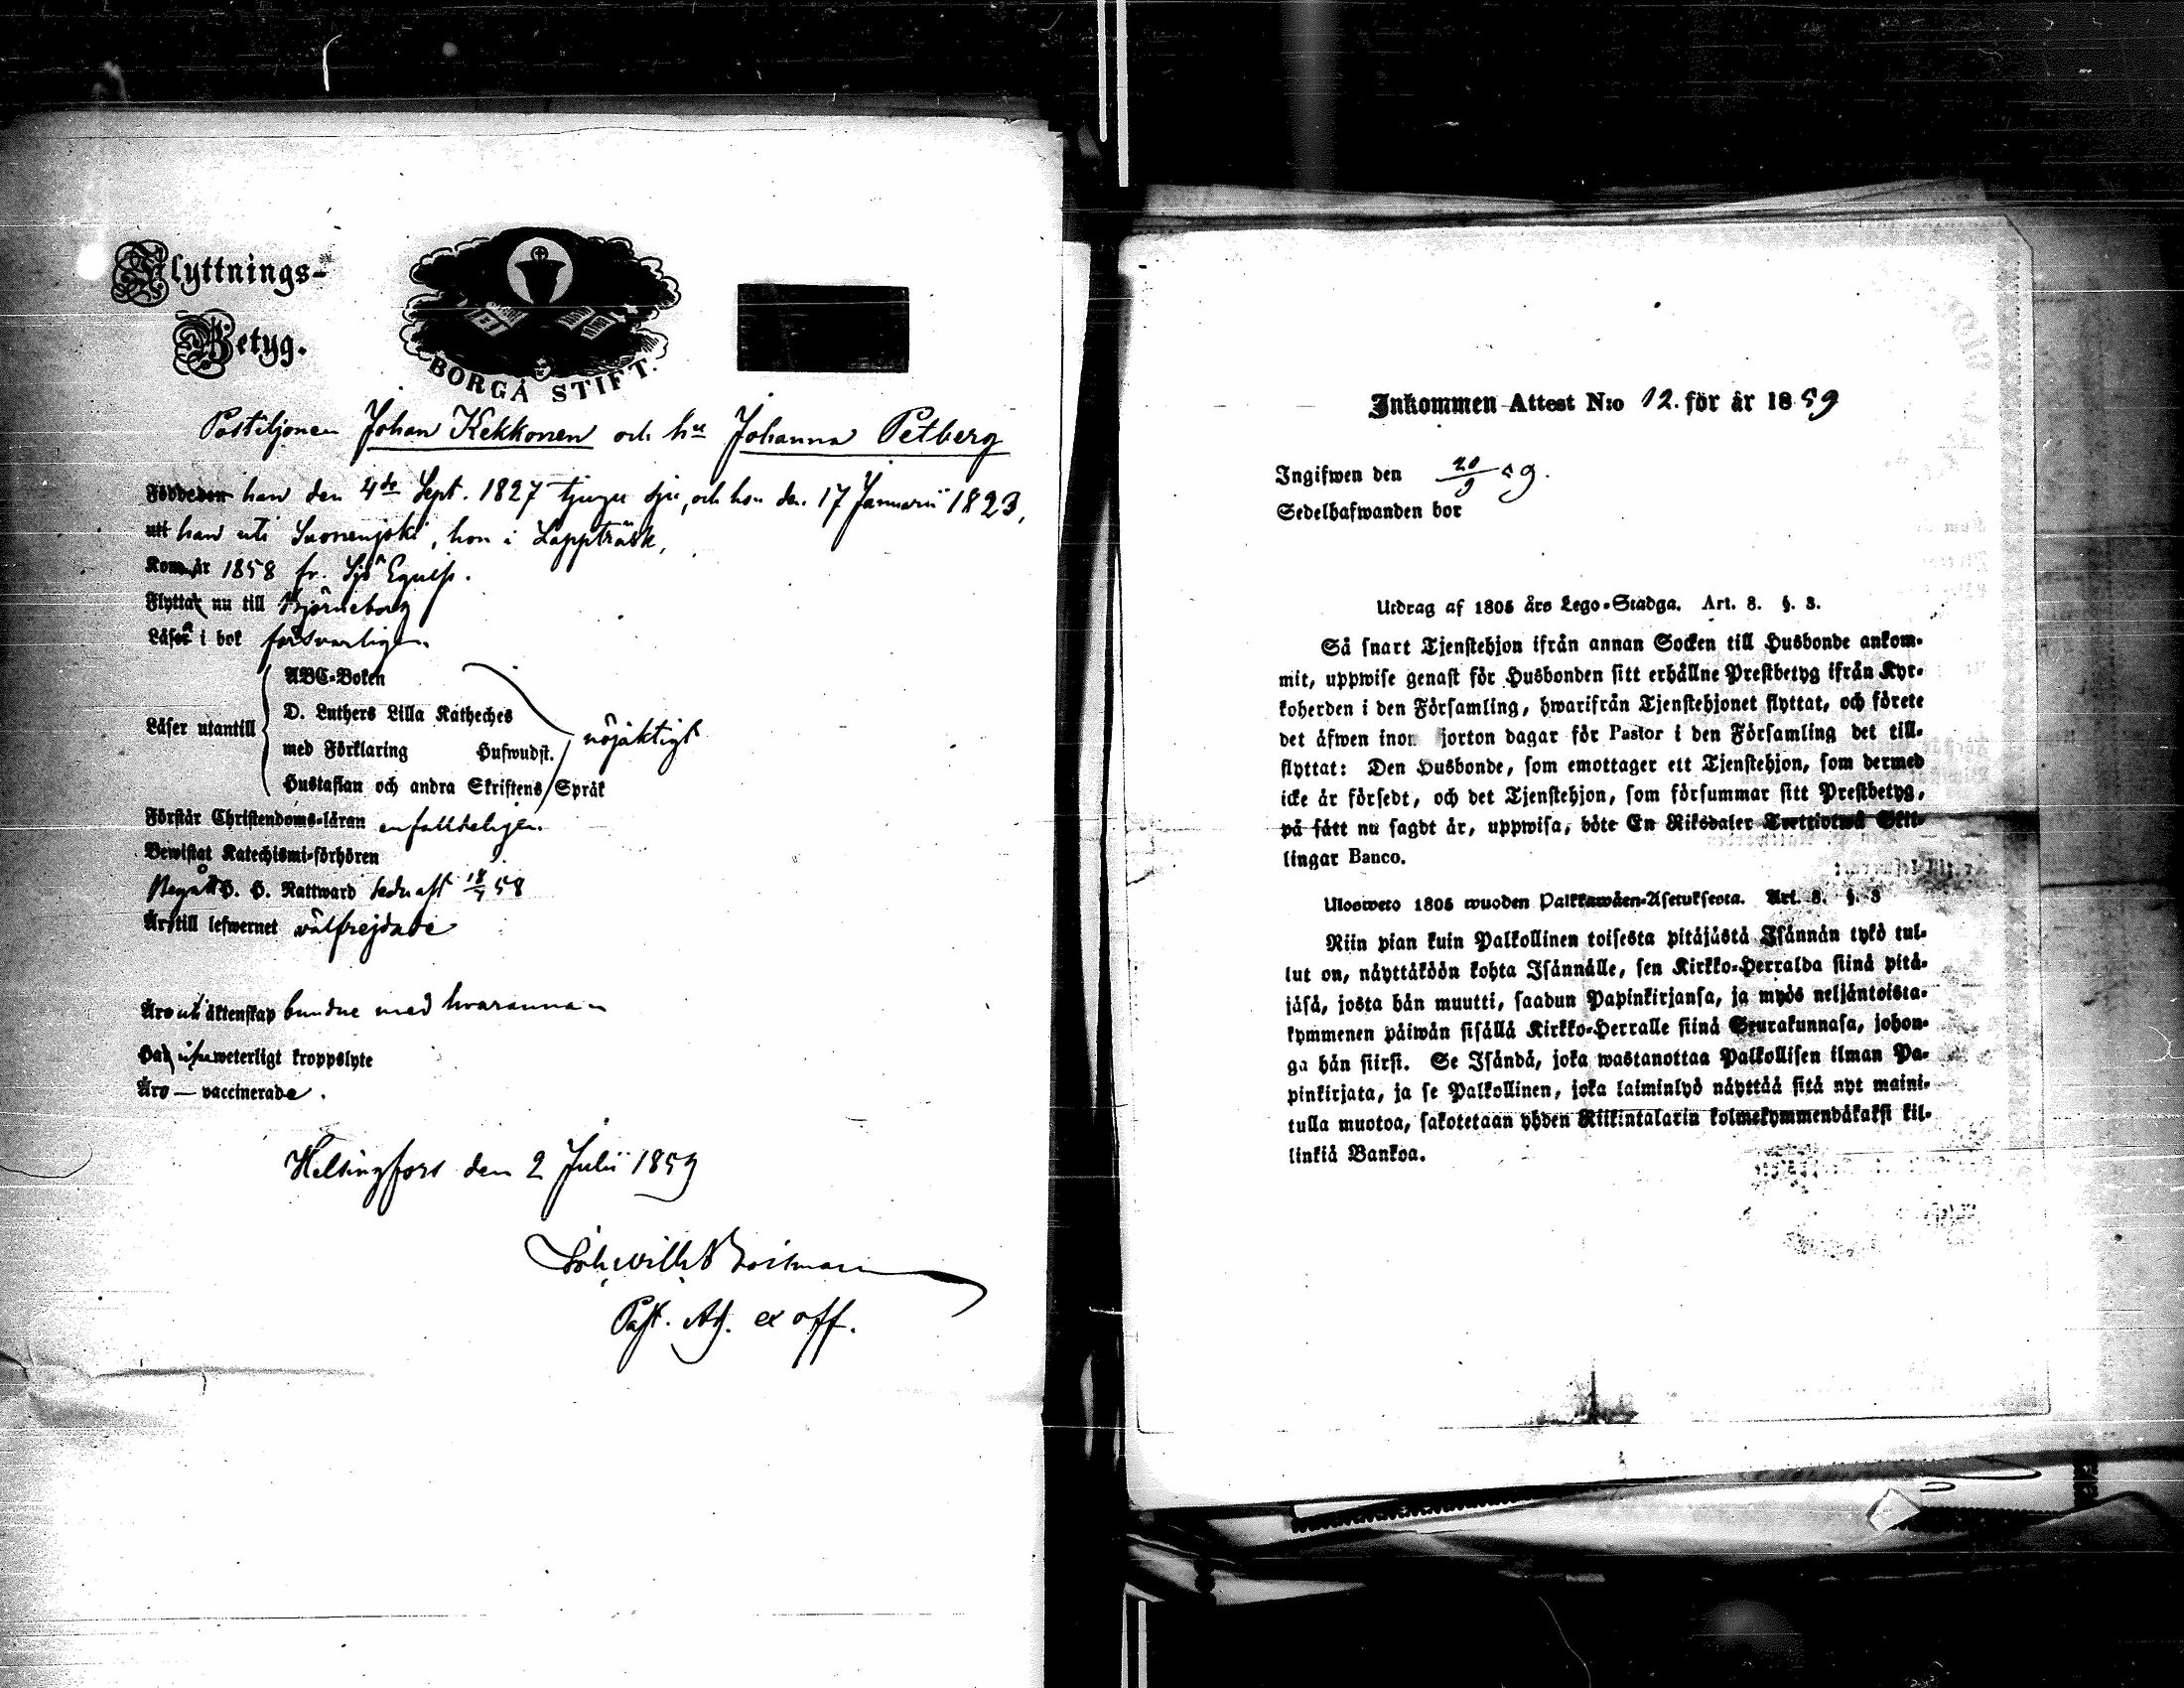 Flyttnings-
Betyg.
BORGÅ STIFT.
Postiljonen Johan Kekkonen och hu Johanna Petberg
Född den han den 4de Sept. 1827 tjugu sju, och hon den 17 Januarii 1823,
uti han uti Suonenjoki, hon i Lappträsk,
Kom år 1858 fr. Sjö Equip.
Flytta nu till Björneborg
Läsa i bok försvarligen.
Läser utantill
ABC-Boken
D. Luthers Lilla Katheches
med Förklaring Hufwudst.
Hustaflan och andra Skriftens Språk
nöjaktigt
Förstår Christendoms-läran enfalldeligen.
Bewistat Katechismi-förhören
Begått H. H. Nattward sednast 18/7 58
Äro till lefwernet välfrejdade
Äro uti äktenskap bundne med hvarannan
Ha weterligt kroppslyte
Äro — vaccinerade.
Helsingfors den 2 Julii 1859
Past. Adj. ex off.
Inkommen Attest N:o 12. för år 1859
Ingifwen den 20/9 59.
Sedelhafwanden bor
Utdrag af 1805 års Lego-Stadga. Art. 8. §. 3.
Så snart Tjenstehjon ifrån annan Socken till Husbonde ankom-
mit, uppwise genast för Husbonden sitt erhållne Prestbetyg ifrån Kyr-
koherden i den Församling, hwarifrån Tjenstehjonet flyttat, och förete
det äfwen inom fjorton dagar för Pastor i den Församling det till-
flyttat: Den Husbonde, som emottager ett Tjenstehjon, som dermed
icke är försedt, och det Tjenstehjon, som försummar sitt Prestbetyg,
på sätt nu sagdt är, uppwisa, böte En Riksdaler Trettiotwå Skil-
lingar Banco.
Ulosweto 1805 wuoden Palkkawäen-Asetuksesta. Art. 8. §. 3
Niin pian kuin Palkollinen toisesta pitäjästä Isännän tykö tul-
lut on, näyttäköön kohta Isännälle, sen Kirkko-Herralda siinä pitä-
jäsä, josta hän muutti, saadun Papinkirjansa, ja myös neljäntoista-
kymmenen päiwän sisällä Kirkko-Herralle siinä Seurakunnasa, johon-
ga hän siirsi. Se Isändä, joka wastanottaa Palkollisen ilman Pa-
pinkirjata, ja se Palkollinen, joka laiminlyö näyttää sitä nyt maini-
tulla muotoa, sakotetaan yhden Riikintalarin kolmekymmendäkaksi kil-
linkiä Bankoa.